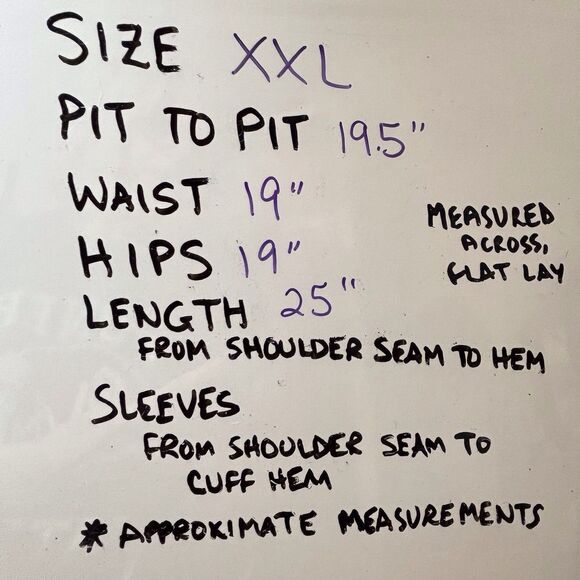 SIZE XXL
PIT TO PIT 19.5"
WAIST 19"
HIPS 19"
MEASURED
ACROSS,
FLAT LAY
LENGTH 25"
FROM SHOULDER SEAM TO HEM
SLEEVES
FROM SHOULDER SEAM TO
CUFF HEM
* APPROXIMATE MEASUREMENTS